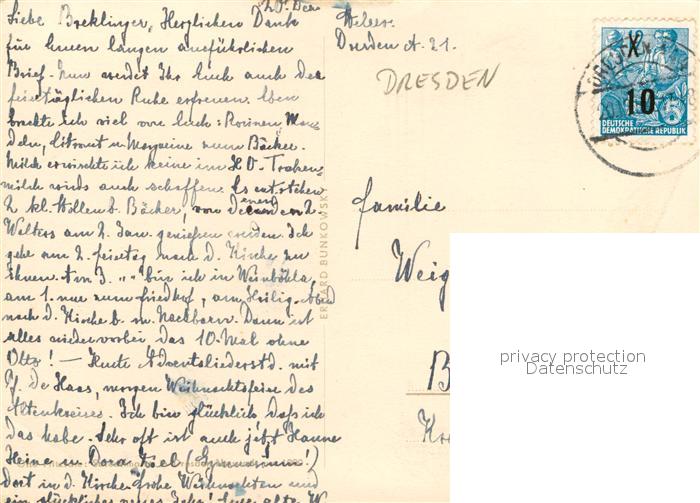 20. Dez.
Liebe Brecklinger, Herzlichen Dank
für Euren langen ausführlichen
Brief. Nun werdet Ihr Euch auch der
feiertäglichen Ruhe erfreuen. Eben
brachte ich viel von Euch: Rosinen Man
deln, Citronat u. Margarine zum Bäcker.
Milch erwischte ich keine im H O. Trocken
milch wirds auch schaffen. Es entstehen
2 kl. Stollen b. Bäcker, von denen
Walters am 2. Jan. genießen werden. Ich
gehe am 2. Feiertag nach d. Kirche zu
ihnen. Am 3. " " bin ich in Weinböhla,
am 1. nur zum Friedhof, am Heilig. Abend
nach d. Kirche b. m. Nachbarn. Dann ist
alles wieder vorbei das 10. Mal ohne
Otto! — Heute Adventsliederstd. mit
Pf. De Haas, morgen Weihnachtsfeier des
Altenkreises. Ich bin glücklich, daß ich
das habe. Sehr oft ist auch jetzt Hanne
Heine u. Dora (Gymnasium!)
dort in d. Kirche. Frohe Weihnachten und
ein glückliches neues Jahr! Eure alte W
Dresden A. 21.
DRESDEN
ERHARD BUNKOWSKY
X
10
DEUTSCHE
DEMOKRATISCHE REPUBLIK
Familie
Weig
B
Kr
privacy protection
Datenschutz